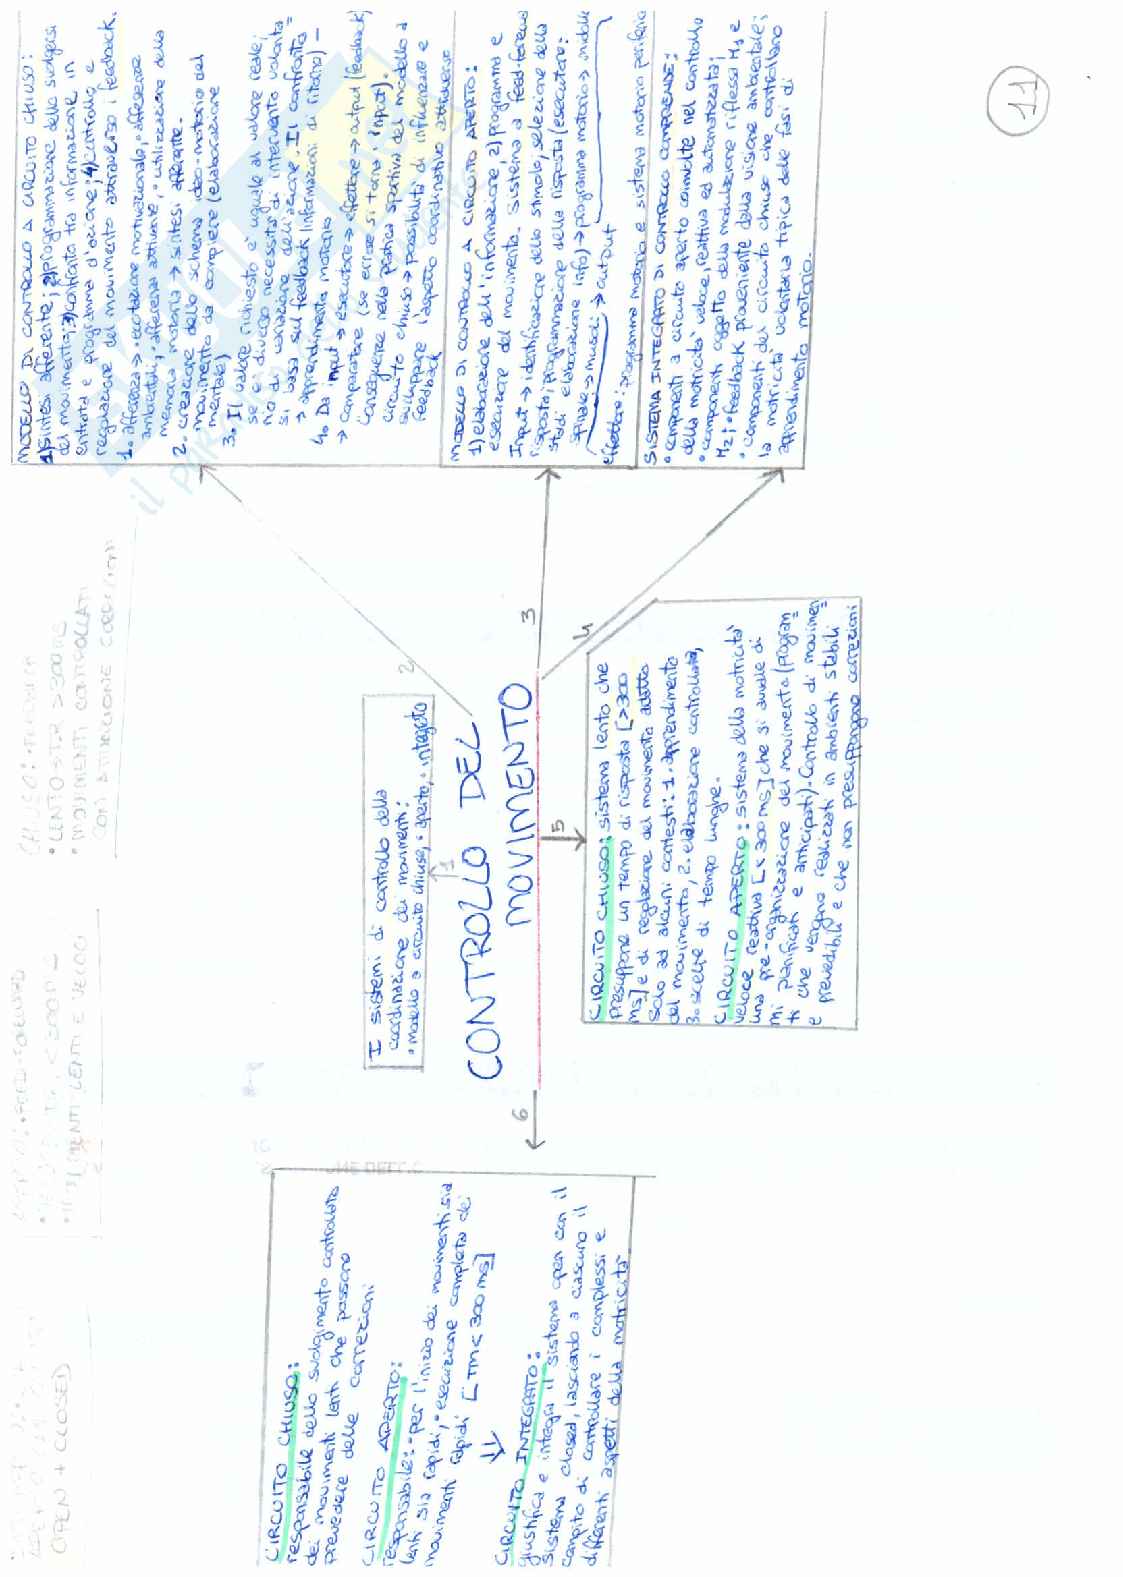 11
CONTROLLO DEL
MOVIMENTO
1
I sistemi di controllo della
coordinazione dei movimenti:
• modello a circuito chiuso, • aperto, • integrato
2
MODELLO DI CONTROLLO A CIRCUITO CHIUSO:
1) Sintesi afferente; 2) programmazione dello svolgersi
del movimento; 3) confronto tra informazione in
entrata e programma d'azione; 4) controllo e
regolazione del movimento attraverso i feedback.
1. afferenza → • eccitazione motivazionale, • afferenze
ambientali, • afferenza attivante, • utilizzazione della
memoria motoria → sintesi afferente.
2. creazione dello schema ideo-motorio del
movimento da compiere (elaborazione
mentale)
3. Il valore richiesto è uguale al valore reale;
se è diverso necessita di intervento volonta=
rio di variazione dell'azione. Il confronto
si basa sul feedback (informazioni di ritorno) -
→ apprendimento motorio
4. Da input → esecutore → effettore → output (feedback)
→ comparatore (se errore si torna a input).
Conseguenze nella pratica sportiva del modello a
circuito chiuso → possibilità di influenzare e
sviluppare l'aspetto coordinativo attraverso
feedback
3
MODELLO DI CONTROLLO A CIRCUITO APERTO:
1) elaborazione dell'informazione, 2) programma e
esecuzione del movimento. Sistema a feed-forward
Input → identificazione dello stimolo, selezione della
risposta, programmazione della risposta (esecutore:
stadi elaborazione info) → programma motorio → midollo
spinale → muscoli → output
effettore: programma motorio e sistema motorio periferico
4
SISTEMA INTEGRATO DI CONTROLLO COMPRENDE:
• componenti a circuito aperto coinvolte nel controllo
della motricità veloce, reattiva ed automatizzata;
• componenti oggetto della modulazione riflessi M1 e
M2; • feedback proveniente della visione ambientale;
• componenti del circuito chiuso che controllano
la motricità volontaria tipica delle fasi di
apprendimento motorio.
5
CIRCUITO CHIUSO: sistema lento che
presuppone un tempo di risposta [>300
ms] e di regolazione del movimento adatto
solo ad alcuni contesti: 1. apprendimento
del movimento, 2. elaborazione controllata,
3. scelte di tempo lunghe.
CIRCUITO APERTO: sistema della motricità
veloce reattiva [< 300 ms] che si avvale di
una pre-organizzazione del movimento (program
mi pianificati e anticipati). Controllo di movimen=
ti che vengono realizzati in ambienti stabili
e prevedibili e che non presuppongono correzioni
6
CIRCUITO CHIUSO:
responsabile dello svolgimento controllato
dei movimenti lenti che possono
prevedere delle correzioni
CIRCUITO APERTO:
responsabile: • per l'inizio dei movimenti sia
lenti sia rapidi, • esecuzione completa dei
movimenti rapidi [TM < 300 ms]
CIRCUITO INTEGRATO:
giustifica e integra il sistema open con il
sistema closed, lasciando a ciascuno il
compito di controllare i complessi e
differenti aspetti della motricità
OPEN + CLOSED
• LENTO > TR > 300 ms
• MOVIMENTI CONTROLLATI